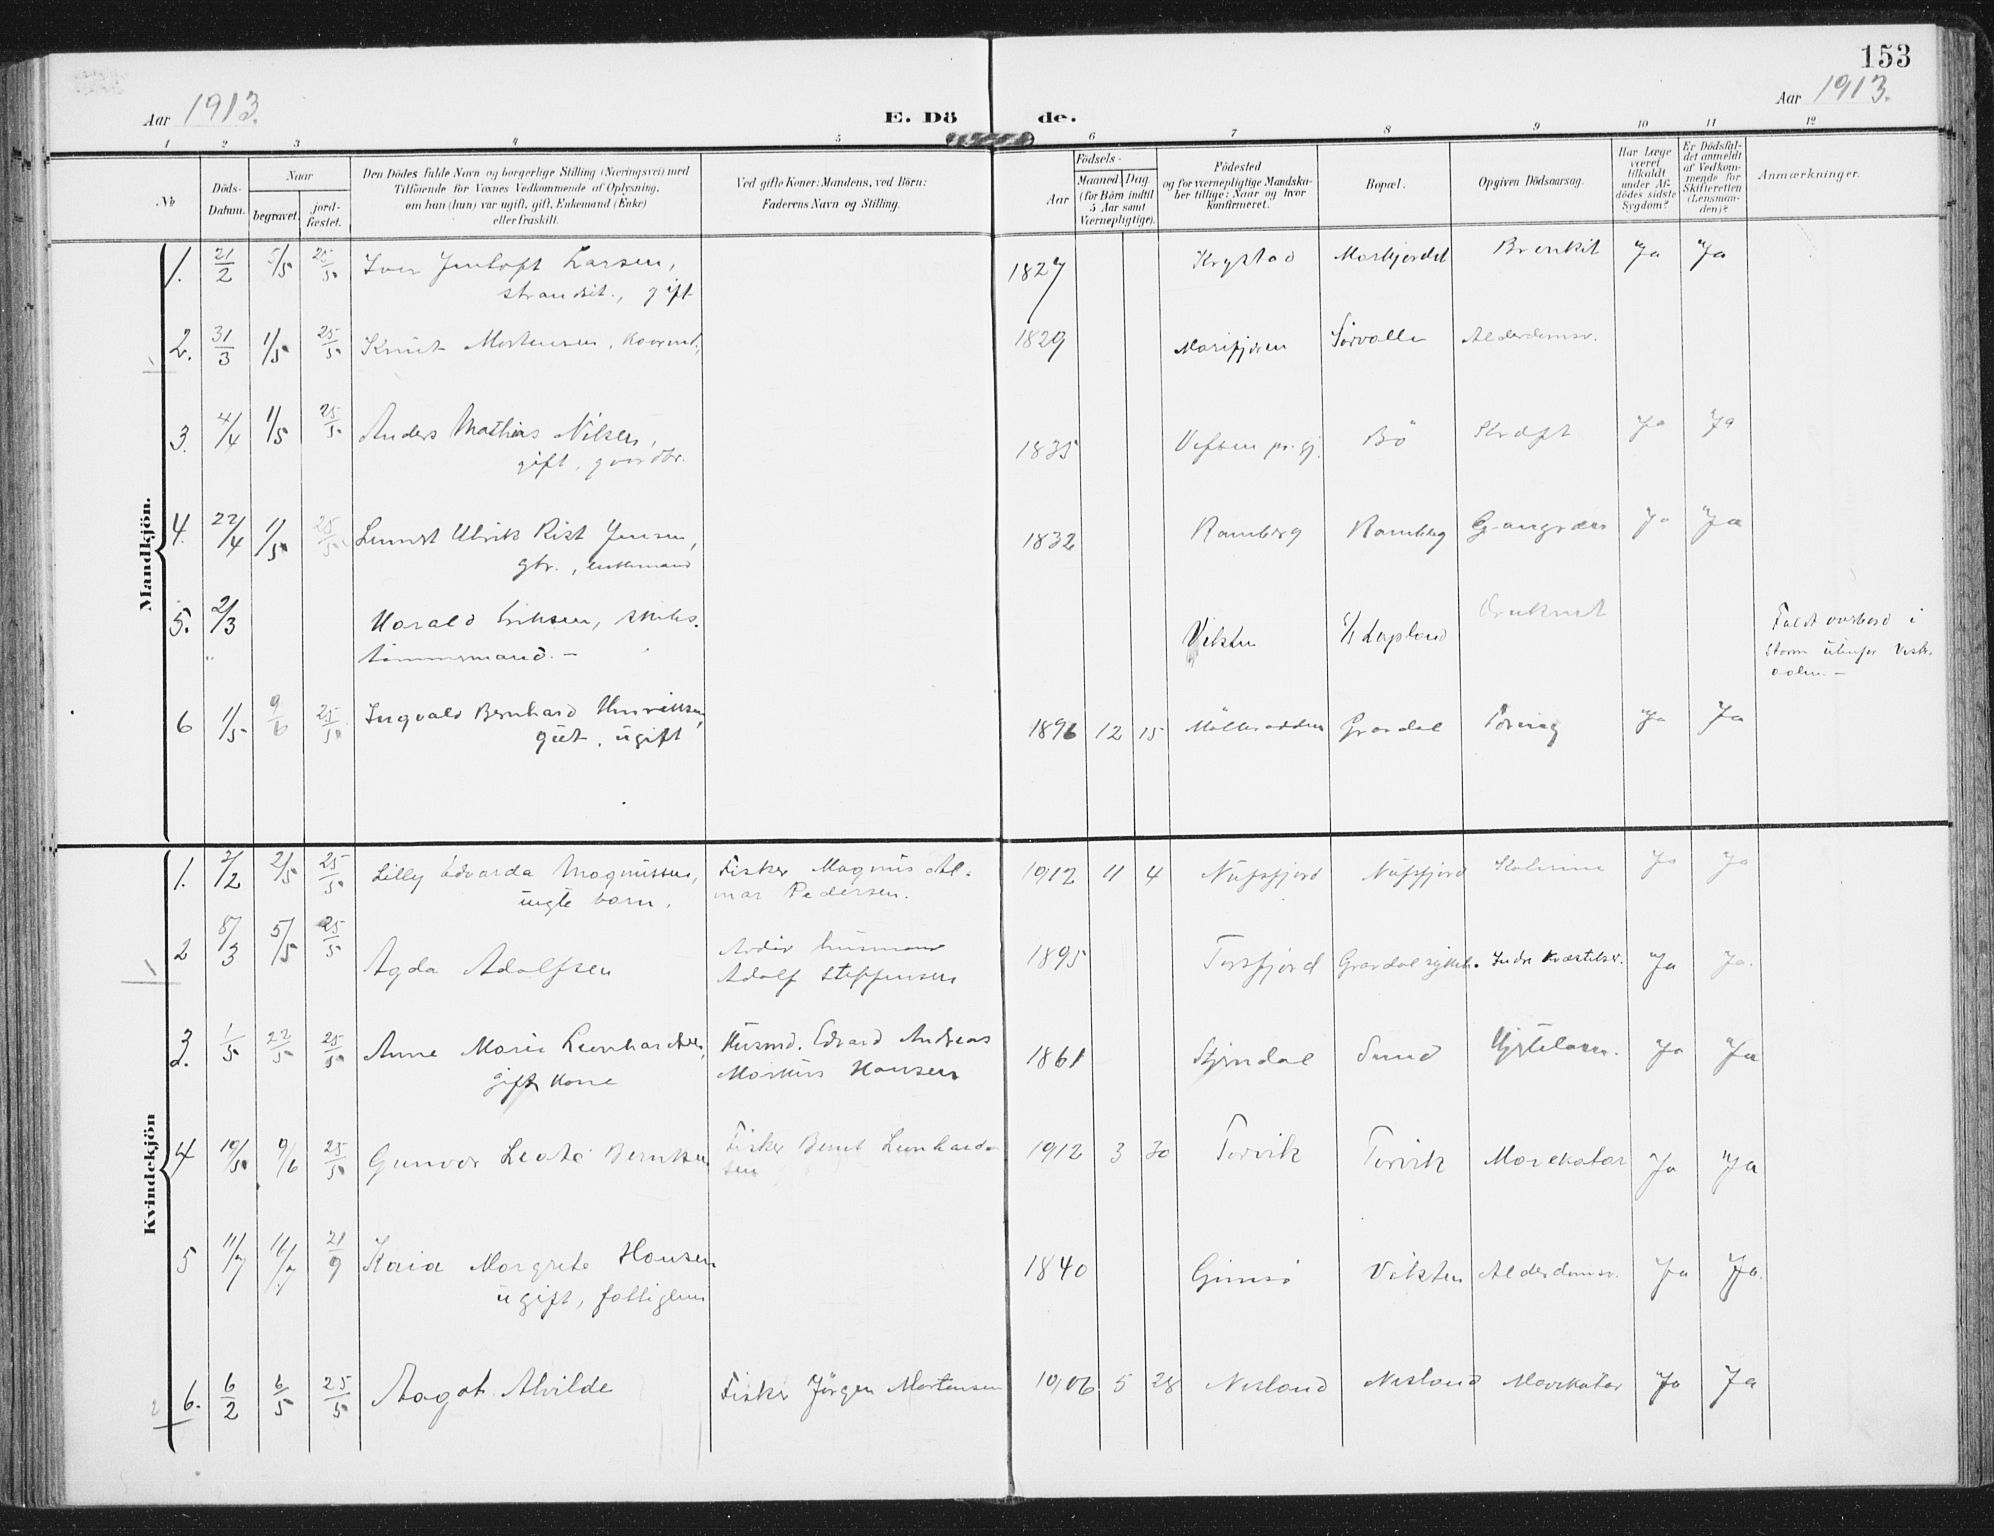 153
Aar 1913.
E. Dö de.
Aar 1913.
1 2 3 4 5 6 7 8 9 10 11 12
No.
Döds-Datum.
Naar
begravet.
jord-fæstet.
Den Dödes fulde Navn og borgerlige Stilling (Næringsvei) med
Tilföiende for Voxnes Vedkommende af Oplysning,
om han (hun) var ugift, gift, Enkemand (Enke)
eller fraskilt.
Ved gifte Koner: Mandens, ved Börn:
Faderens Navn og Stilling.
Födsels-
Aar
Maaned Dag
(for Börn indtil
5 Aar samt
Værnepligtige).
Födested
og for værnepligtige Mandska-
ber tillige: Naar og hvor
konfirmeret.
Bopæl.
Opgiven Dödsaarsag.
Har Læge
været
tilkaldt
under Af-
dödes sidste
Sygdom?
Er Dödsfal-
det anmeldt
af Vedkom-
mende for
Skifteretten
(Lensman-
den)?
Anmærkninger.
Mandkjön.
1. 21/2 5/5 25/5 Iver Jentoft Larsen, 1827 Krystad Ja Ja
strandsit., gift
2. 31/3 1/5 25/5 Knut Mortensen, 1829 Marifjæren Sørvalle Alderdomsv.
3. 4/4 1/5 25/5 Anders Mathias Nilsen, 1835 Vefsen pr.gj. Bö Kræft Ja Ja
gift, gaardbr.
4. 22/4 1/5 25/5 Ulrik Rist Jensen, 1832 Ramberg Ramberg Ja Ja
gbr., enkemand
5. 2/3 Harald Eriksen, skibs- Vikten Druknet Faldt overbord i
tømmermand. — storm
6 1/5 9/6 25/5 Ingvald Bernhard Henriksen, 1896 12 15 Mölleradden Gravdal Tæring Ja Ja
gut, ugift
Kvindekjön
1. 2/2 2/5 25/5 Lilly Edvarda Magnussen, Fisker Magnus Al- 1912 11 4 Nufsfjord Nufsfjord Ja Ja
ungte barn. mar Pedersen.
2 8/3 5/5 25/5 Agda Adolfsen husmand 1895 Torsfjord Gravdal sykeh. Indre Ja Ja.
Adolf Steffensen
3. 1/5 22/5 25/5 Anne Marie Leonhardsen, Husmd. Edvard Andreas 1861 Stjørdal Sund Ja Ja
gift kone Markus Hansen
4 10/5 9/6 25/5 Gunvor Leate Berntsen Fisker Bernt Leonhard- 1912 3 30 Torvik Torvik Mavekatar Ja Ja
sen
5 11/7 11/7 21/9 Kaia Margrete Hansen 1840 Gimsö Vikten Alderdomsv. Ja Ja.
ugift, fattiglem
6. 6/2 6/5 25/5 Aagot Alvilde Fisker Jörgen Mortensen 1906 5 28 Nesland Nesland Mavekatar Ja Ja